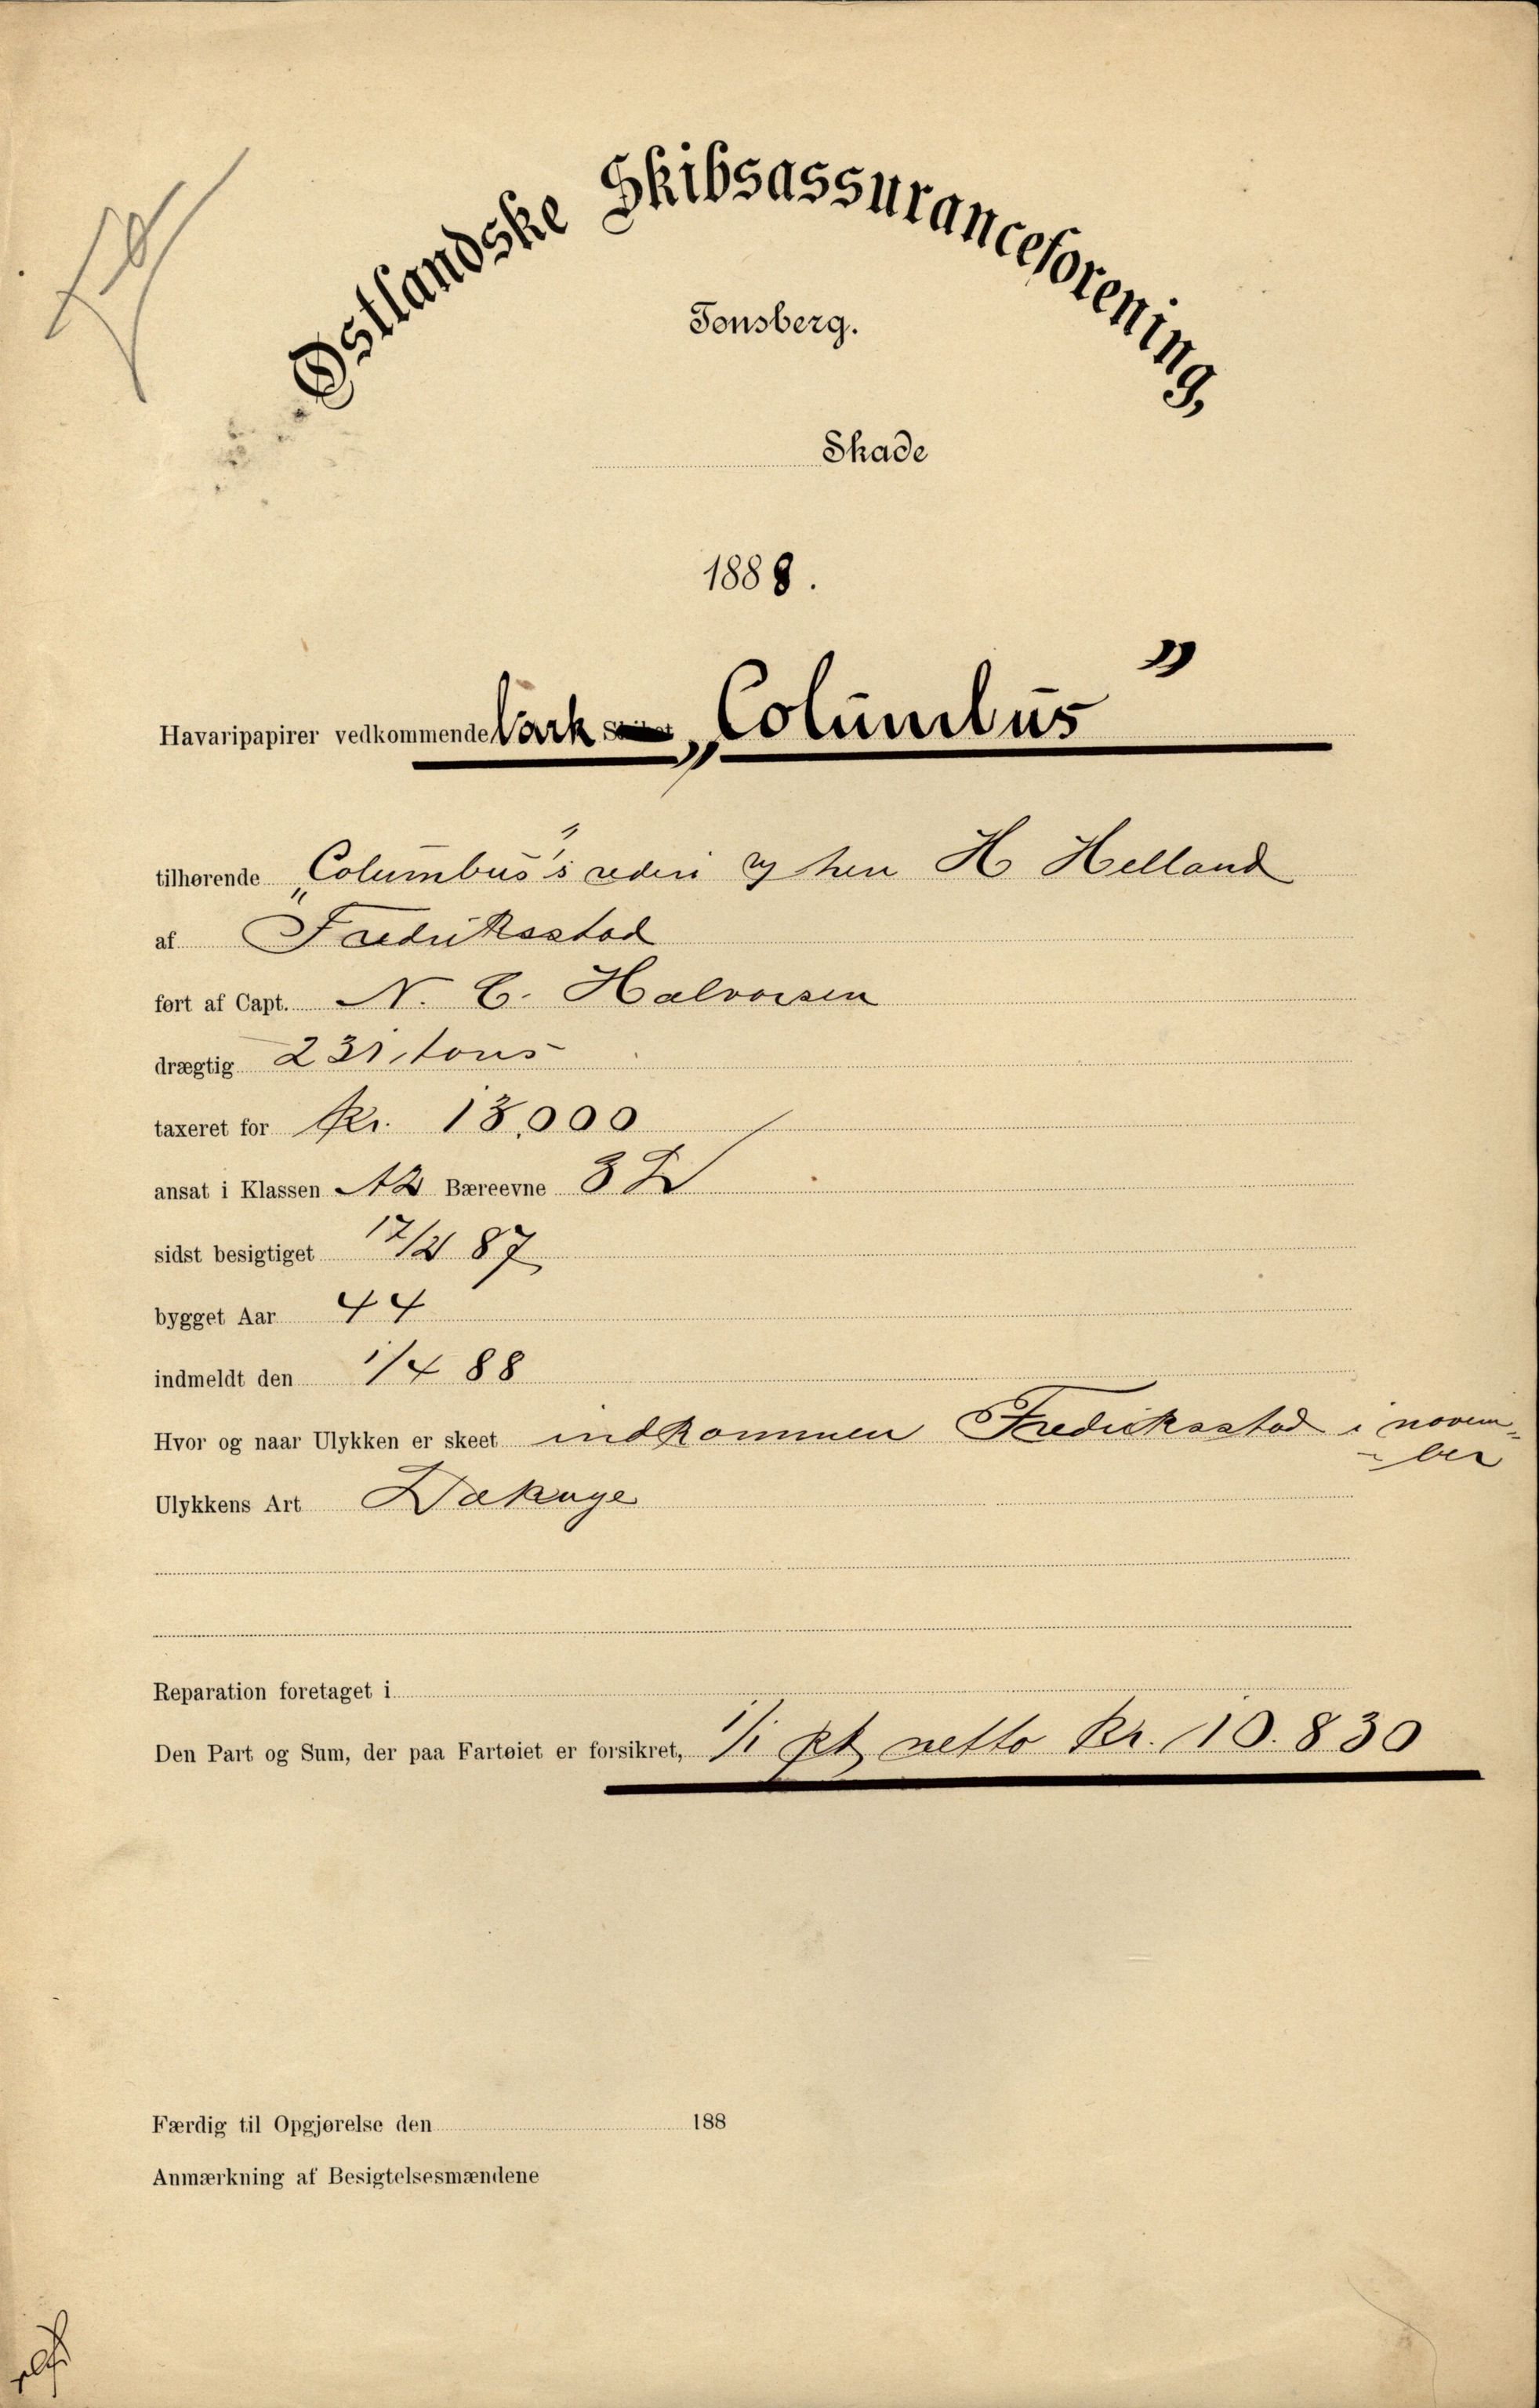 Østlandske Skibsassuranceforening,
Tonsberg.
Skade
1888.
Havaripapirer vedkommende Bark „Columbus"
tilhørende „Columbus"'s rederi v/ herr H Helland
af Fredriksstad
ført af Capt. N. C. Halvorsen
drægtig 231 tons
taxeret for Kr. 13,000
ansat i Klassen A2 Bæreevne 3
sidst besigtiget 17/2 87
bygget Aar 44
indmeldt den 1/4 88
Hvor og naar Ulykken er skeet indkommen Fredriksstad i novem-
ber
Ulykkens Art Lækage
Reparation foretaget i
Den Part og Sum, der paa Fartøiet er forsikret, 1/1 pt netto Kr. 10.830
Færdig til Opgjørelse den 188
Anmærkning af Besigtelsesmændene